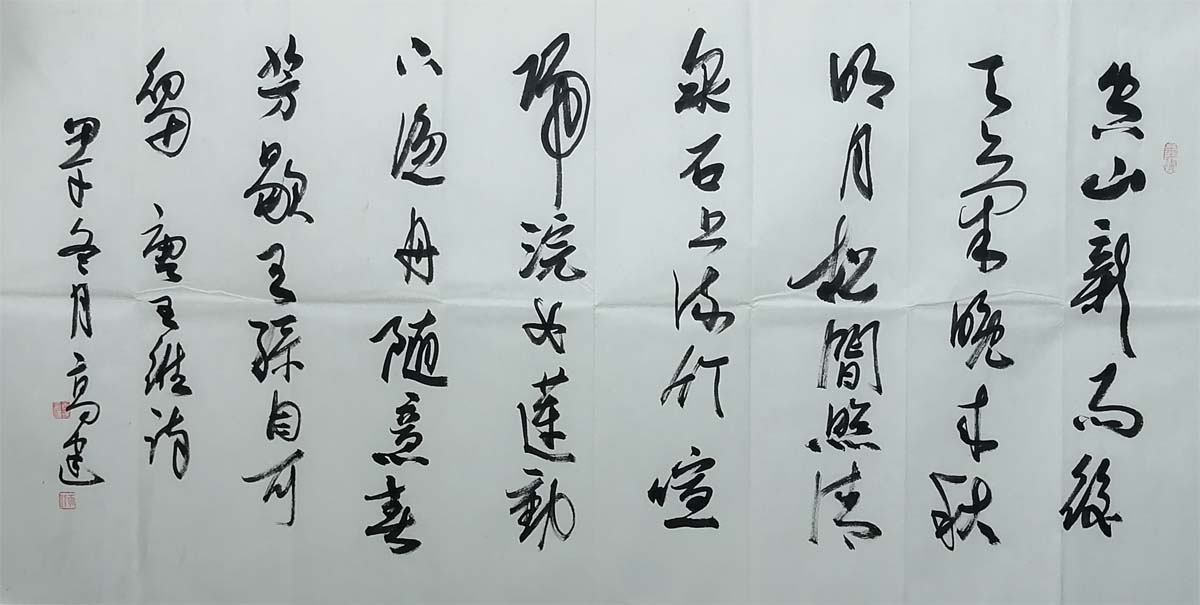 空山新雨後
天氣晚来秋
明月松間照清
泉石上流竹喧
歸浣女蓮動
下漁舟随意春
芳歇王孫自可
留 唐王維詩
甲午冬月高建